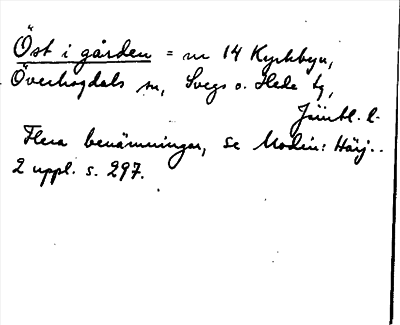 Öst i gården = nr 14 Kyrkbyn,
Överhogdals sn, Svegs o. Hede tg,
Jämtl. l.
Flera benämningar, se Modin: Härj..
2 uppl. s. 297.